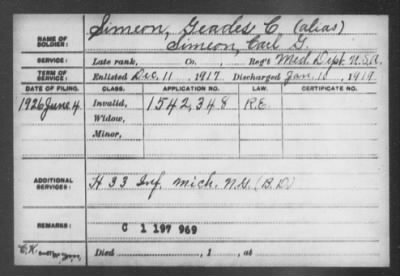 NAME OF SOLDIER: Simeon, Geades C. (alias)
Simeon, Carl G.
SERVICE: Late rank, Co., Reg't Med. Dept. U.S.A.
TERM OF SERVICE: Enlisted Dec. 11, 1917. Discharged Jan. 1919
DATE OF FILING. CLASS. APPLICATION NO. LAW. CERTIFICATE NO.
1926 June 4 Invalid, 1542,348 R.E.
Widow,
Minor,
ADDITIONAL SERVICES: H 33 Inf. Mich. N.G. (B.D)
REMARKS: C 1 197 969
Died , 1 , at